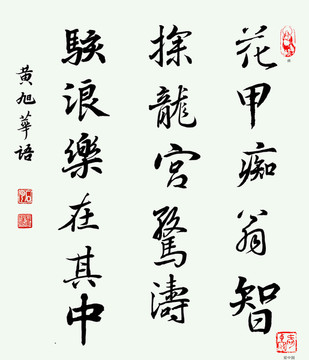 花甲痴翁智
探龍宮驚濤
駭浪樂在其中
黄旭華语